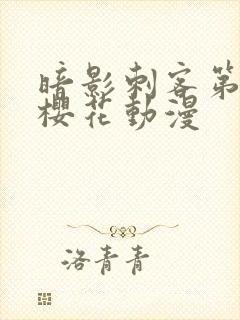 暗影刺客第
櫻花動漫
洛青青